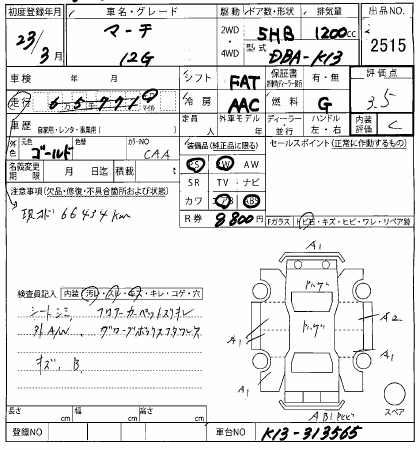 初度登録年月 車名・グレード 駆動 ドア数・形状 排気量 出品NO.
23/3月 マーチ 12G 2WD 4WD 5HB 1200cc 2515
型式 DBA-K13
車検 年 月 シフト FAT 保証書 有・無 評価点
走行 65771 マイル 冷房 AAC 燃料 G 3.5
車歴 自家用・レンタ・事業用( ) 定員 人 外車モデル 年 ディーラー 並行 ハンドル 左・右 内装評価 C
外色 元色 ゴールド 色替 カラーNO CAA 装備品(純正品に限る) セールスポイント(正常に作動するもの)
名義変更期限 月 日迄 積載 t PS PW AW
SR TV ナビ
注意事項(欠品・修復・不具合箇所および状態) カワ エアB ABS
現メーター 66434km R券 8800円 Fガラス トビ石・キズ・ヒビ・ワレ・リペア跡
A1
検査員記入 内装 汚レ・スレ・キズ・キレ・コゲ・穴
シートシミ、フロアーカーペットスリキレ
外A/W グローブボックスフタワレ
キズ、B
A1 A1 A2 A1 A1
スペア
長さ cm 幅 cm 高さ cm
登録NO 車台NO K13-313565